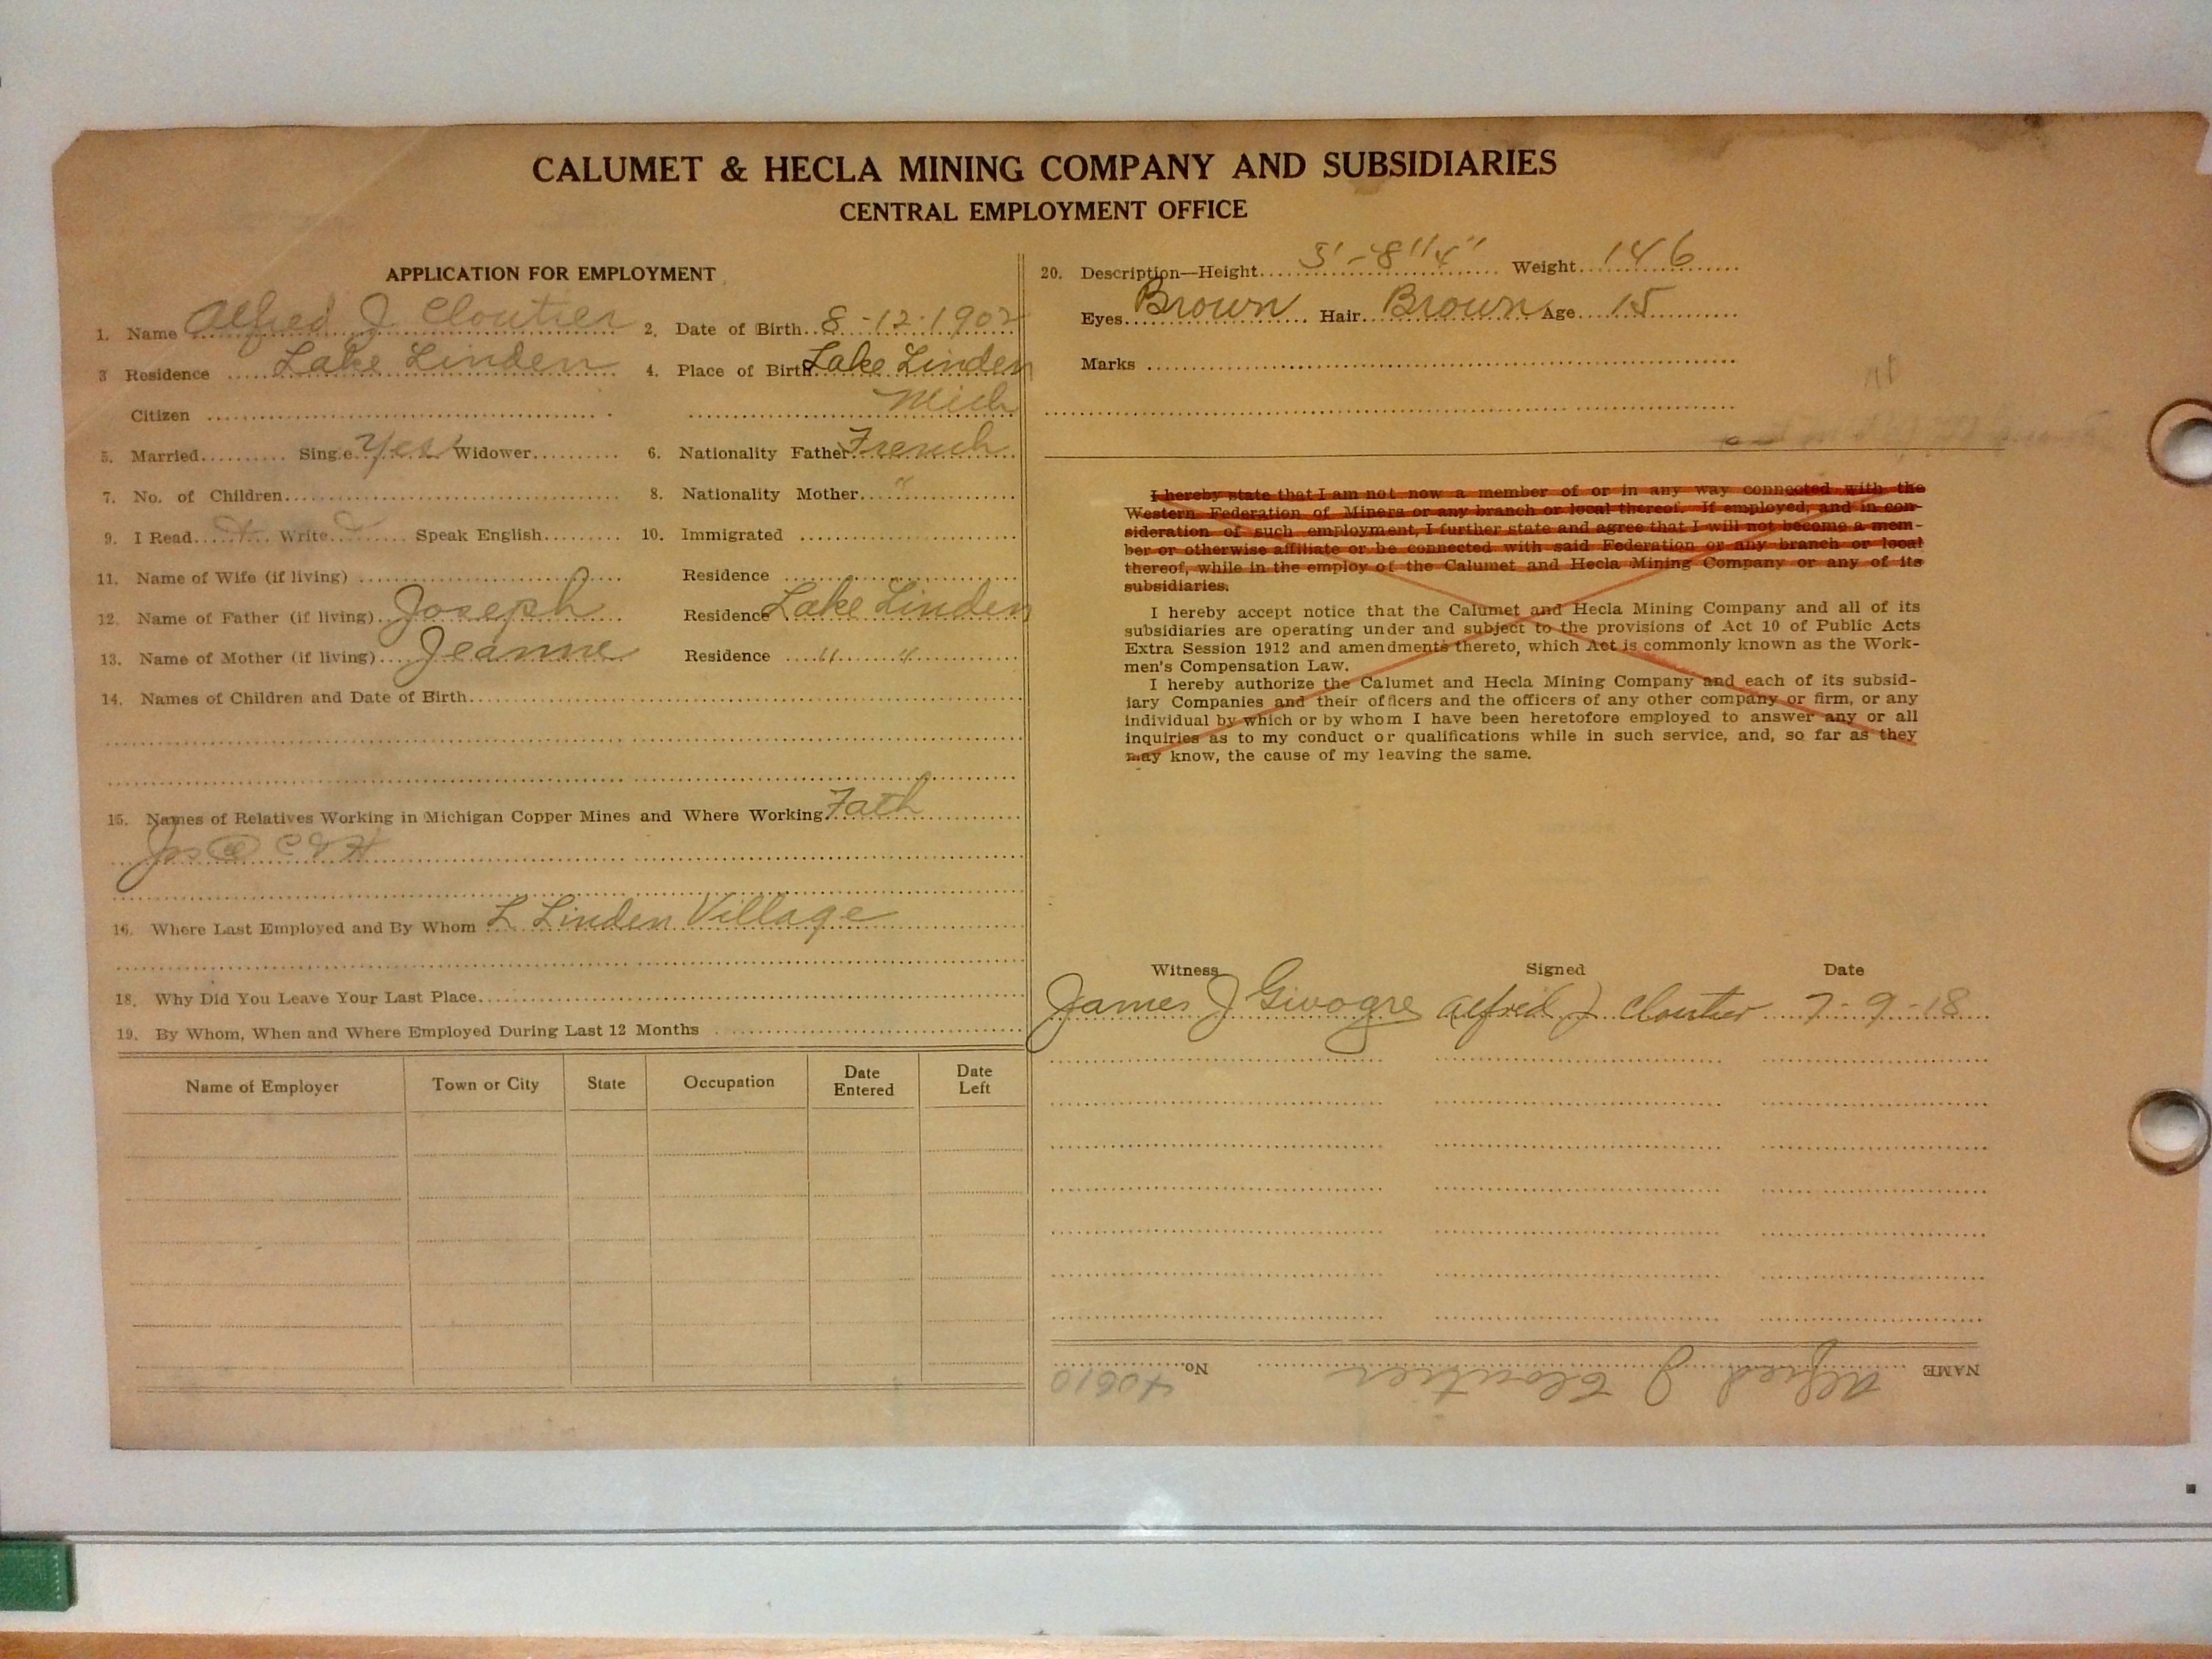 CALUMET & HECLA MINING COMPANY AND SUBSIDIARIES
CENTRAL EMPLOYMENT OFFICE
APPLICATION FOR EMPLOYMENT
1. Name Alfred J Cloutier 2. Date of Birth 8-12-1902
3 Residence Lake Linden 4. Place of Birth Lake Linden
Citizen Mich
5. Married Single Yes Widower 6. Nationality Father French
7. No. of Children 8. Nationality Mother "
9. I Read Write Speak English 10. Immigrated
11. Name of Wife (if living) Residence
12. Name of Father (if living) Joseph Residence Lake Linden
13. Name of Mother (if living) Jeanne Residence " "
14. Names of Children and Date of Birth
15. Names of Relatives Working in Michigan Copper Mines and Where Working Fath
Jos @ C & H
16. Where Last Employed and By Whom L Linden Village
18. Why Did You Leave Your Last Place
19. By Whom, When and Where Employed During Last 12 Months
Name of Employer Town or City State Occupation Date Entered Date Left
20. Description—Height 5'-8 1/4" Weight 146
Eyes Brown Hair Brown Age 15
Marks
I hereby state that I am not now a member of or in any way connected with the
Western Federation of Miners or any branch or local thereof. If employed, and in con-
sideration of such employment, I further state and agree that I will not become a mem-
ber or otherwise affiliate or be connected with said Federation or any branch or local
thereof, while in the employ of the Calumet and Hecla Mining Company or any of its
subsidiaries.
I hereby accept notice that the Calumet and Hecla Mining Company and all of its
subsidiaries are operating under and subject to the provisions of Act 10 of Public Acts
Extra Session 1912 and amendments thereto, which Act is commonly known as the Work-
men's Compensation Law.
I hereby authorize the Calumet and Hecla Mining Company and each of its subsid-
iary Companies and their officers and the officers of any other company or firm, or any
individual by which or by whom I have been heretofore employed to answer any or all
inquiries as to my conduct or qualifications while in such service, and, so far as they
may know, the cause of my leaving the same.
Witness Signed Date
James J Givogre Alfred J Cloutier 7-9-18
NAME Alfred J Cloutier No. 40610